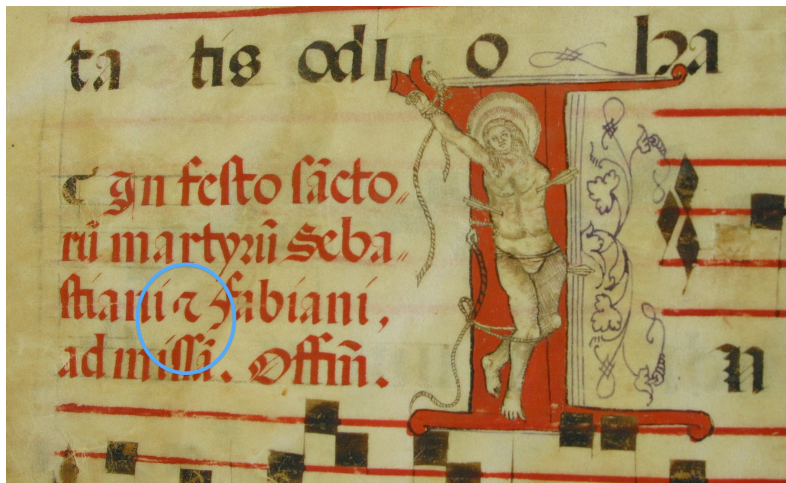 ta tis odi o ha
¶ In festo sācto〃
rū martyrū Seba〃
stiani ⁊ Fabiani,
ad missā. Offm̄.
I n